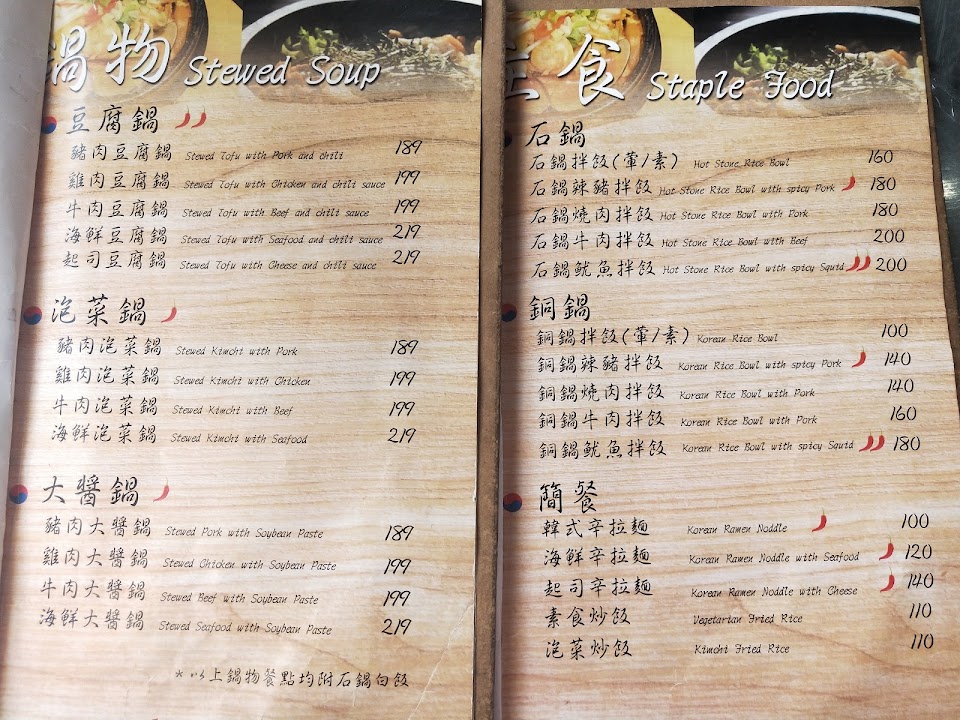 鍋物 Stewed Soup
豆腐鍋
豬肉豆腐鍋 Stewed Tofu with Pork and chili 189
雞肉豆腐鍋 Stewed Tofu with Chicken and chili sauce 199
牛肉豆腐鍋 Stewed Tofu with Beef and chili sauce 199
海鮮豆腐鍋 Stewed Tofu with Seafood and chili sauce 219
起司豆腐鍋 Stewed Tofu with Cheese and chili sauce 219
泡菜鍋
豬肉泡菜鍋 Stewed Kimchi with Pork 189
雞肉泡菜鍋 Stewed Kimchi with Chicken 199
牛肉泡菜鍋 Stewed Kimchi with Beef 199
海鮮泡菜鍋 Stewed Kimchi with Seafood 219
大醬鍋
豬肉大醬鍋 Stewed Pork with Soybean Paste 189
雞肉大醬鍋 Stewed Chicken with Soybean Paste 199
牛肉大醬鍋 Stewed Beef with Soybean Paste 199
海鮮大醬鍋 Stewed Seafood with Soybean Paste 219
*以上鍋物餐點均附石鍋白飯
主食 Staple Food
石鍋
石鍋拌飯(葷/素) Hot Stone Rice Bowl 160
石鍋辣豬拌飯 Hot Stone Rice Bowl with spicy Pork 180
石鍋燒肉拌飯 Hot Stone Rice Bowl with Pork 180
石鍋牛肉拌飯 Hot Stone Rice Bowl with Beef 200
石鍋魷魚拌飯 Hot Stone Rice Bowl with spicy Squid 200
銅鍋
銅鍋拌飯(葷/素) Korean Rice Bowl 100
銅鍋辣豬拌飯 Korean Rice Bowl with spicy Pork 140
銅鍋燒肉拌飯 Korean Rice Bowl with Pork 140
銅鍋牛肉拌飯 Korean Rice Bowl with Pork 160
銅鍋魷魚拌飯 Korean Rice Bowl with spicy Squid 180
簡餐
韓式辛拉麵 Korean Ramen Noddle 100
海鮮辛拉麵 Korean Ramen Noddle with Seafood 120
起司辛拉麵 Korean Ramen Noddle with Cheese 140
素食炒飯 Vegetarian Fried Rice 110
泡菜炒飯 Kimchi Fried Rice 110